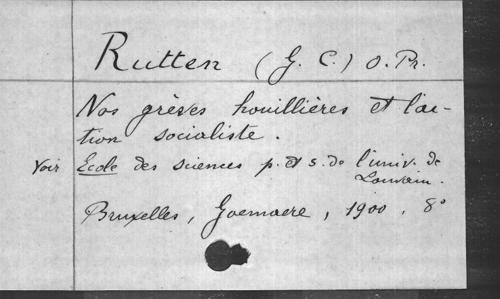 Rutten (G. C.) O. Pr.
Nos grèves houillières et l'ac-
tion socialiste.
Voir Ecole des sciences p. et s. de l'univ. de
Louvain.
Bruxelles, Goemaere, 1900, 8°